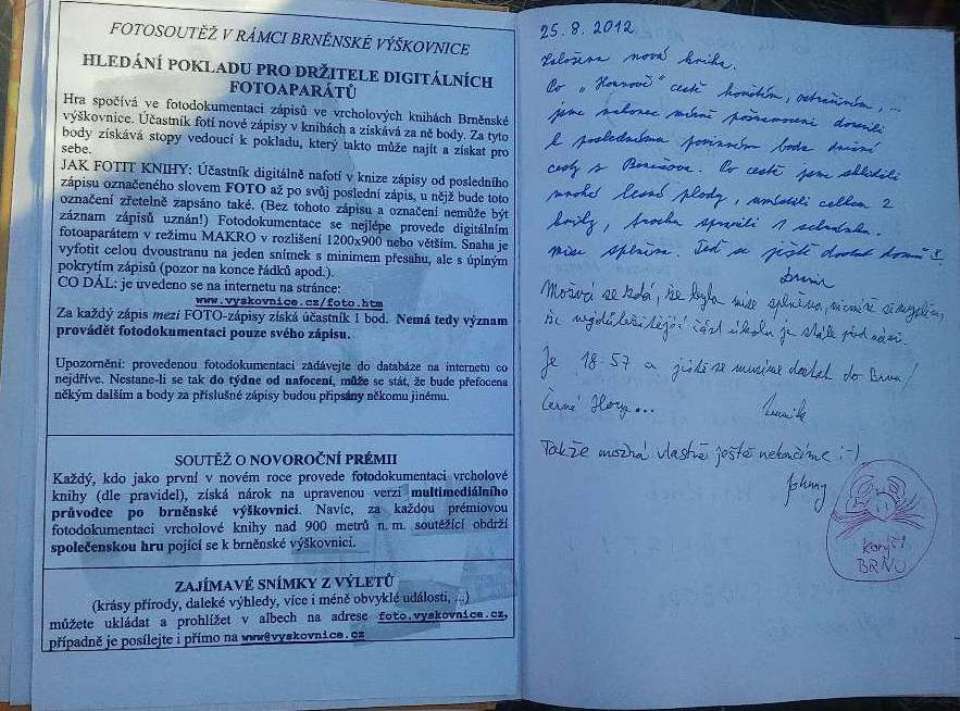 FOTOSOUTĚŽ V RÁMCI BRNĚNSKÉ VÝŠKOVNICE
HLEDÁNÍ POKLADU PRO DRŽITELE DIGITÁLNÍCH
FOTOAPARÁTŮ
Hra spočívá ve fotodokumentaci zápisů ve vrcholových knihách Brněnské
výškovnice. Účastník fotí nové zápisy v knihách a získává za ně body. Za tyto
body získává stopy vedoucí k pokladu, který takto může najít a získat pro
sebe.
JAK FOTIT KNIHY: Účastník digitálně nafotí v knize zápisy od posledního
zápisu označeného slovem FOTO až po svůj poslední zápis, u nějž bude toto
označení zřetelně zapsáno také. (Bez tohoto zápisu a označení nemůže být
záznam zápisů uznán!) Fotodokumentace se nejlépe provede digitálním
fotoaparátem v režimu MAKRO v rozlišení 1200x900 nebo větším. Snaha je
vyfotit celou dvoustranu na jeden snímek s minimem přesahu, ale s úplným
pokrytím zápisů (pozor na konce řádků apod.).
CO DÁL: je uvedeno se na internetu na stránce:
www.vyskovnice.cz/foto.htm
Za každý zápis mezi FOTO-zápisy získá účastník 1 bod. Nemá tedy význam
provádět fotodokumentaci pouze svého zápisu.
Upozornění: provedenou fotodokumentaci zadávejte do databáze na internetu co
nejdříve. Nestane-li se tak do týdne od nafocení, může se stát, že bude přefocena
někým dalším a body za příslušné zápisy budou připsány někomu jinému.
SOUTĚŽ O NOVOROČNÍ PRÉMII
Každý, kdo jako první v novém roce provede fotodokumentaci vrcholové
knihy (dle pravidel), získá nárok na upravenou verzi multimediálního
průvodce po brněnské výškovnici. Navíc, za každou prémiovou
fotodokumentaci vrcholové knihy nad 900 metrů n. m. soutěžící obdrží
společenskou hru pojící se k brněnské výškovnici.
ZAJÍMAVÉ SNÍMKY Z VÝLETŮ
(krásy přírody, daleké výhledy, více i méně obvyklé události, ...)
můžete ukládat a prohlížet v albech na adrese foto.vyskovnice.cz,
případně je posílejte i přímo na www@vyskovnice.cz
25. 8. 2012
Založena nová kniha.
Po " cestě , ostružiním, ...
jsme nakonec mírně poznamenáni dorazili
k poslednímu povinnému bodu dnešní
cesty z Benešova. Po cestě jsme sklidili
mnohé lesní plody, umístili celkem 2
knihy, trochu spravili 1 schránku.
mise splněna. Teď se ještě dostat domů
Možná se zdá, že byla mise splněna, nicméně
že nejdůležitější část úkolu je stále před námi.
Je 18:57 a ještě se musíme dostat do Brna/
Černé Hory...
Takže možná vlastně ještě nekončíme :-)
Johny
Korýši
BRNO